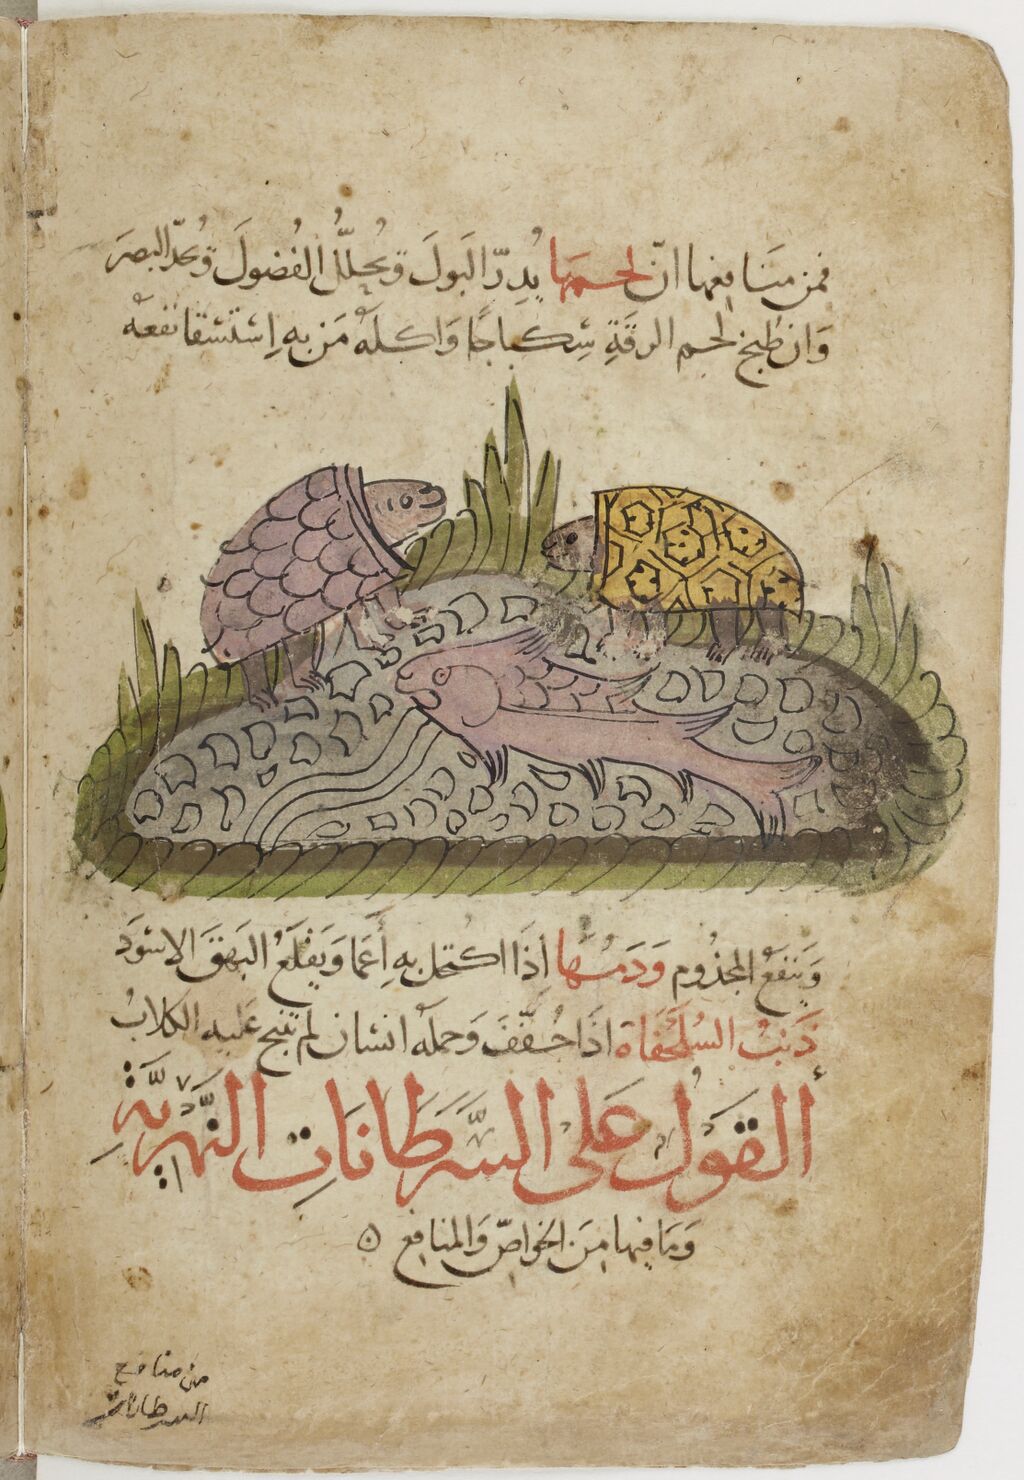 فمن منافعها انّ لحمها يُدِرّ البَولَ وَيُحَلّلُ الفُضولَ وَيُحدّ البصَرَ
وَان طبخ لحم الرقةِ سِكباجًا وَاكلهُ مَن بهِ اِسْتسْقا نفعهُ
وَينفعُ المجذُوم وَدَمها اِذَا اكتحل بهِ أَعما وَيَقلَعُ البَهقَ الاسْودَ
ذَنبُ السُلحَفاة اذَا جُفّفَ وَحملهُ انسَان لم تنبح عَليهِ الكلابُ
أَلقَولُ عَلى السَّرَطَانَاتِ النَّهرِيَّةِ
وَمَا فيها مِنَ الخواصّ وَالمنافِع ه
من منافع
السرطانات